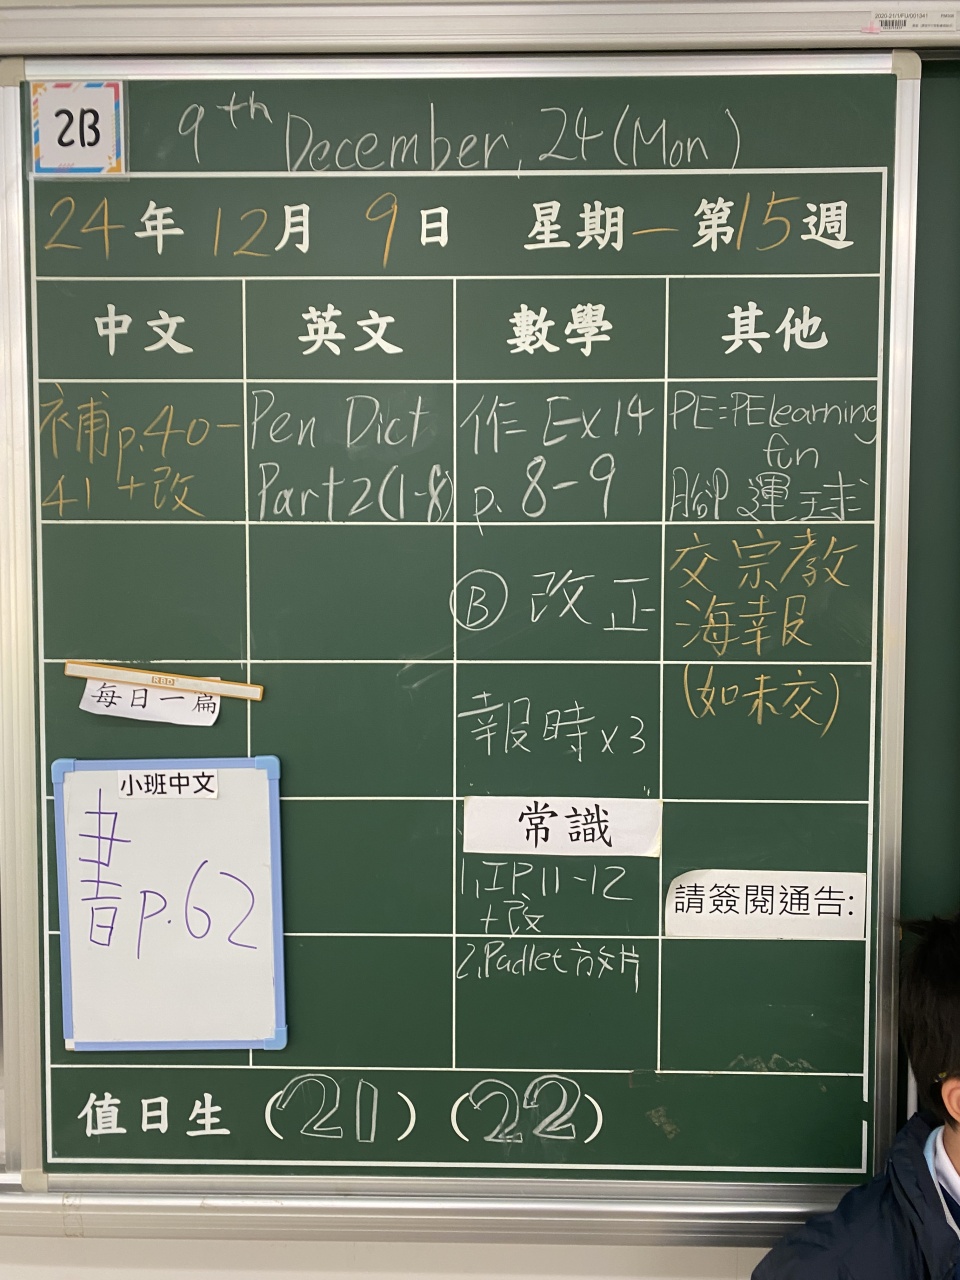 2020-21/1/FU/001341
2B
9th December, 24 (Mon)
24年 12月 9日 星期一 第15週
中文 英文 數學 其他
補p.40-
41 +改
Pen Dict
Part 2(1-8)
作 Ex14
p. 8-9
PE=PE learning
fun
腳運球
Ⓑ 改正
交宗教
海報
每日一篇
報時x3
(如未交)
小班中文
書p.62
常識
1. IP.11-12
+改
請簽閱通告:
2. Padlet
值日生 (21) (22)